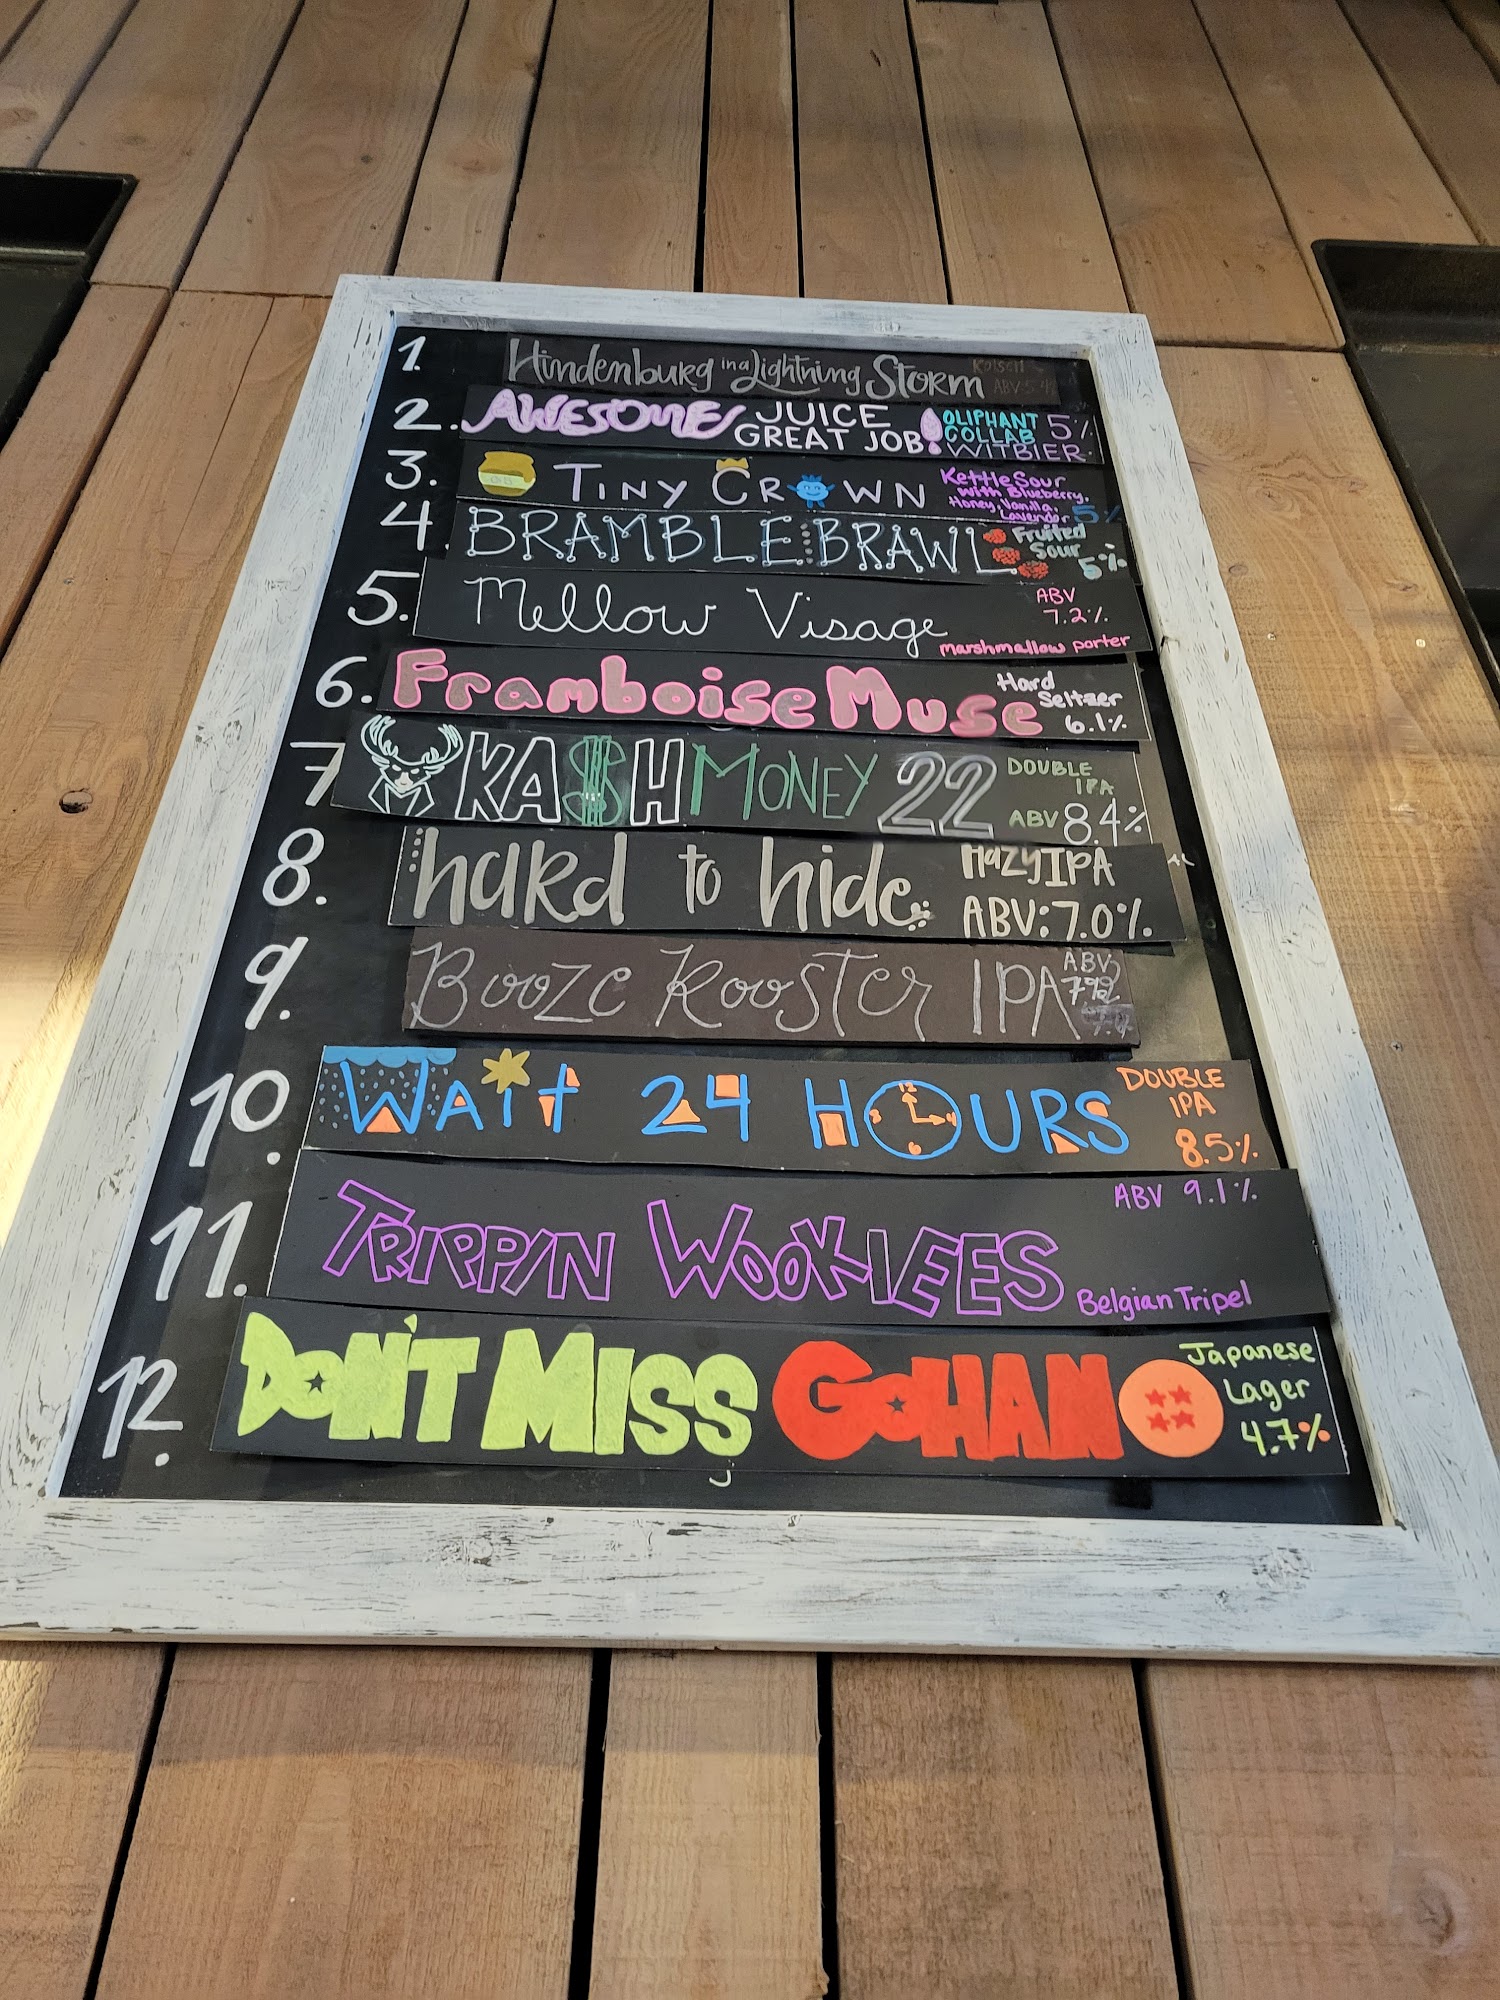 1. Hindenburg in a Lightning Storm Kolsch
ABV:5.4%
2. AWESOME JUICE GREAT JOB! OLIPHANT COLLAB WITBIER 5%
3. TINY CROWN Kettle Sour with Blueberry, Honey, Vanilla, Lavender 5%
4. BRAMBLE BRAWL Fruited Sour 5%
5. Mellow Visage ABV 7.2%
marshmallow porter
6. Framboise Muse Hard Seltzer 6.1%
7 KA$H MONEY 22 DOUBLE IPA
ABV 8.4%
8. hard to hide Hazy IPA
ABV: 7.0%
9. Booze Rooster IPA ABV
10. WAIT 24 HOURS DOUBLE IPA 8.5%
11. TRIPPIN WOOKIEES ABV 9.1%
Belgian Tripel
12. DON'T MISS GOHAN Japanese Lager 4.7%